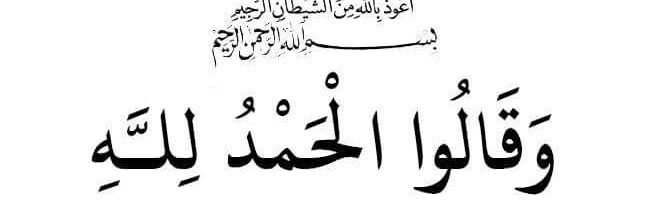 أعوذ بالله من الشيطان الرجيم
بسم الله الرحمن الرحيم
وَقَالُوا الْحَمْدُ لِلَّهِ